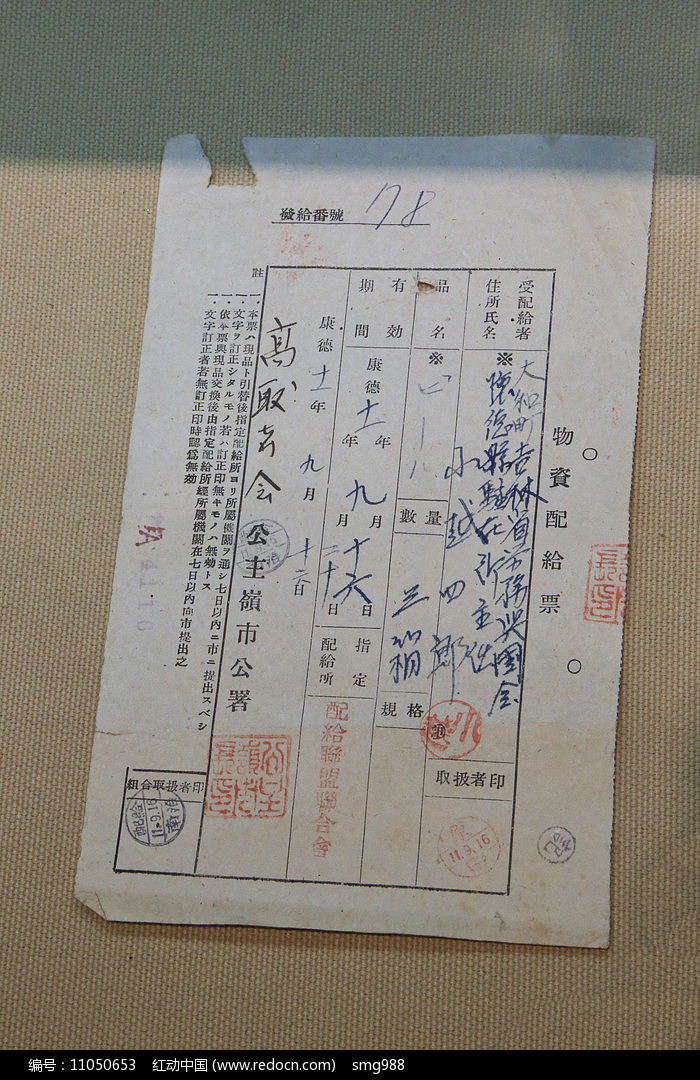 發給番號 78
物資配給票
受配給者
住所氏名
※大和町吉林省労務興國会
懷德縣駐在所主任
小越四郎
取扱者印
品名
※
數量
三箱
規格
有效
期間
康德十一年九月十六日
二十日
指定
配給所
配給聯盟聯合會
康德十一年九月十六日
公主嶺市公署
註
一、本票ハ現品ト引替後指定配給所ヨリ所屬機關ヲ通シ七日以內ニ市ニ提出スベシ
文字ヲ訂正シタルモノ若ハ訂正印無キモノハ無効トス
一、依本票與現品交換後由指定配給所經所屬機關在七日以內向市提出之
文字訂正者若無訂正印時認爲無効
組合取扱者印
11.9.16
11.9.16
编号：11050653 红动中国 (www.redocn.com) smg988